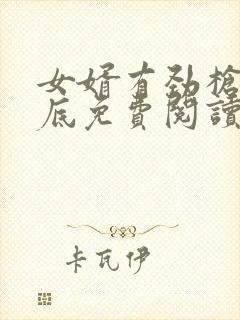 女婿有劲槍
底免費閱讀
卡瓦伊